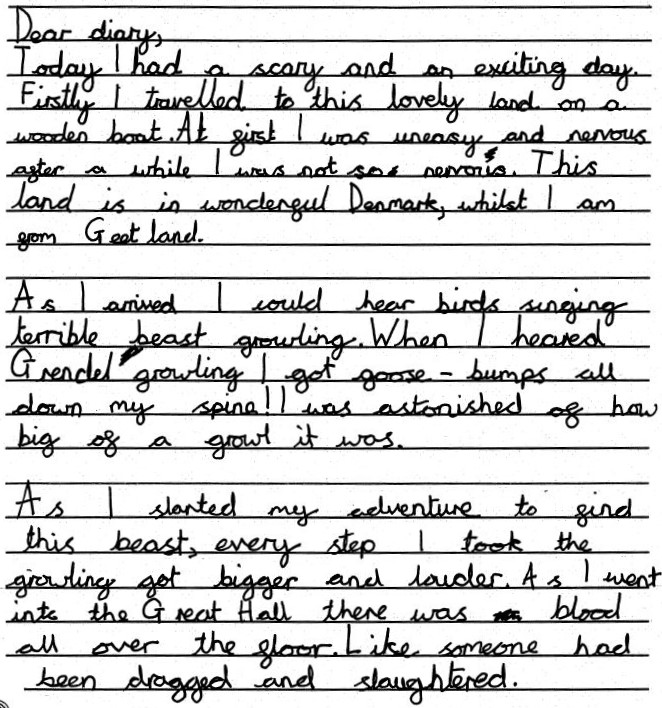 Dear diary,
Today I had a scary and an exciting day.
Firstly I travelled to this lovely land on a
wooden boat. At first I was uneasy and nervous
after a while I was not so nervous. This
land is in wonderful Denmark, whilst I am
from Geatland.
As I arrived I could hear birds singing
terrible beast growling. When I heared
Grendel growling I got goose-bumps all
down my spine! I was astonished of how
big of a growl it was.
As I started my adventure to find
this beast, every step I took the
growling got bigger and louder. As I went
into the Great Hall there was blood
all over the floor. Like someone had
been dragged and slaughtered.